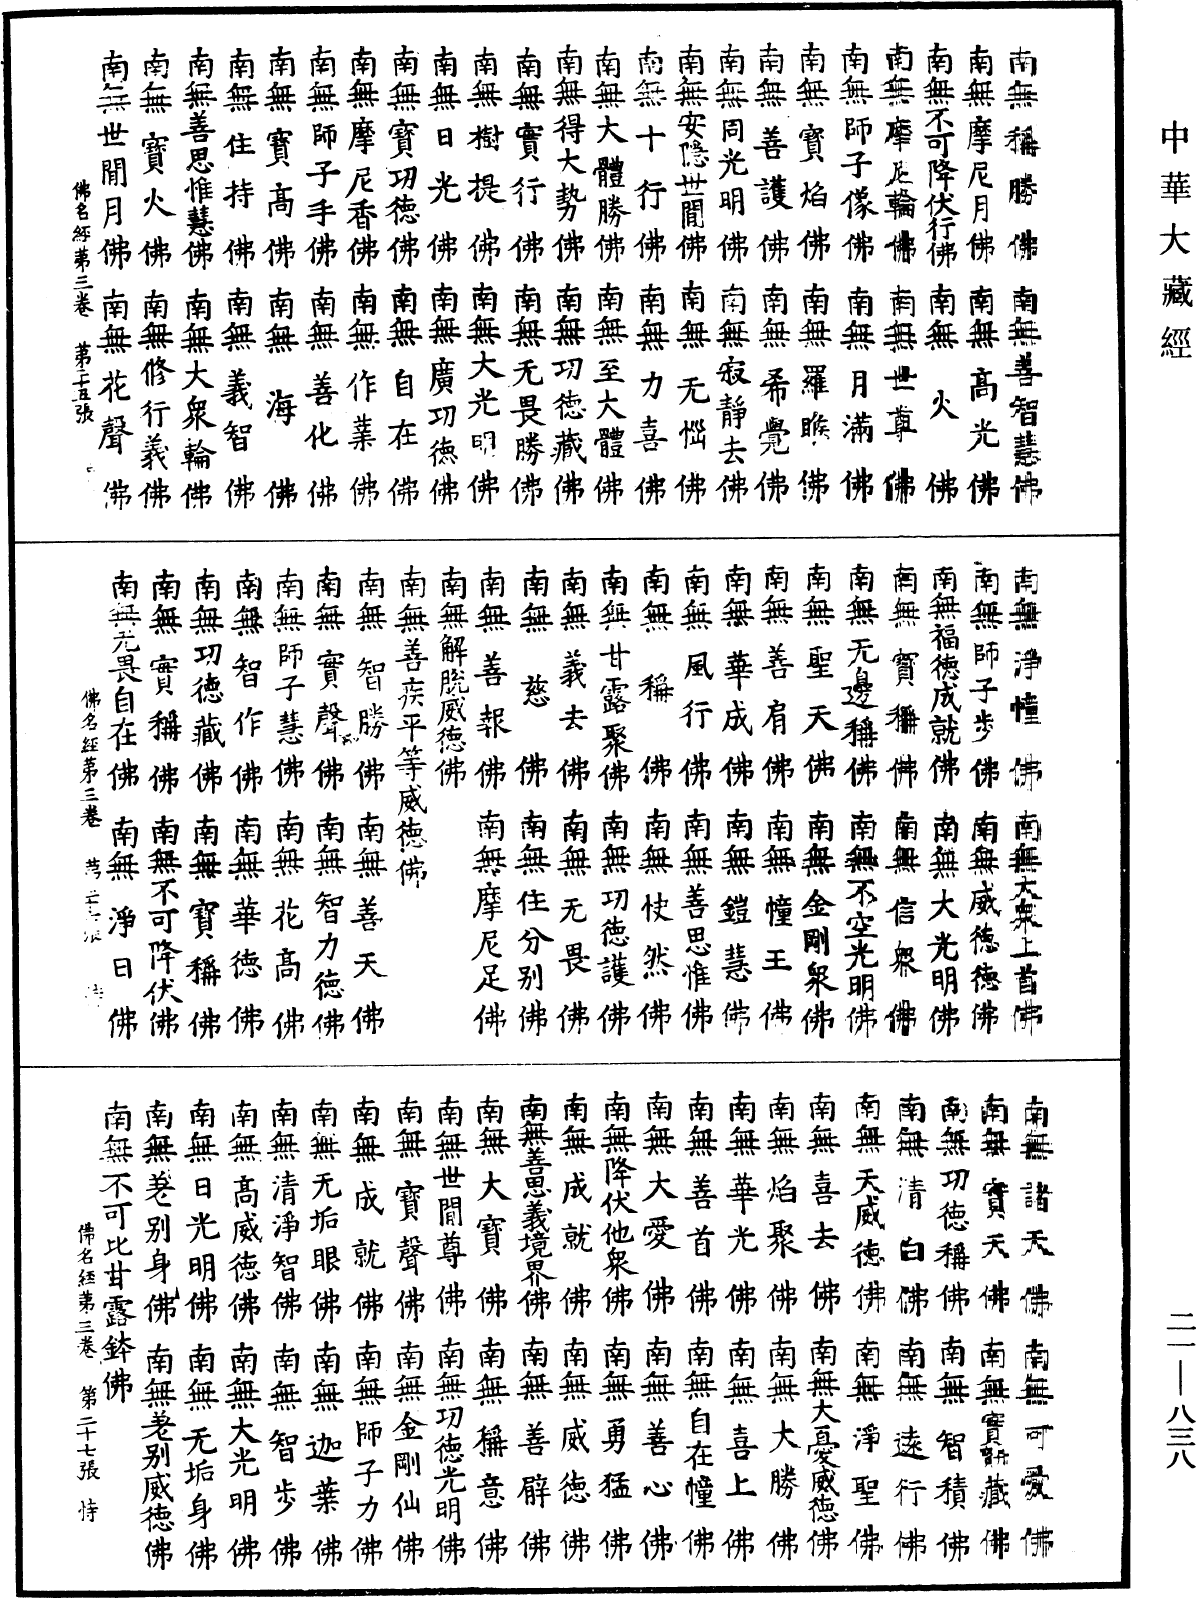 中華大藏經
南無稱勝佛　南無善智慧佛
南無摩尼月佛　南無高光佛
南無不可降伏行佛　南無火佛
南無摩尼輪佛　南無世尊佛
南無師子像佛　南無月滿佛
南無寶焰佛　南無羅睺佛
南無善護佛　南無希覺佛
南無同光明佛　南無寂靜去佛
南無安隱世閒佛　南無无惱佛
南無十行佛　南無力喜佛
南無大體勝佛　南無至大體佛
南無得大勢佛　南無功德藏佛
南無實行佛　南無无畏勝佛
南無樹提佛　南無大光明佛
南無日光佛　南無廣功德佛
南無寶功德佛　南無自在佛
南無摩尼香佛　南無作業佛
南無師子手佛　南無善化佛
南無寶高佛　南無海佛
南無住持佛　南無義智佛
南無善思惟慧佛　南無大衆輪佛
南無寶火佛　南無修行義佛
南無世閒月佛　南無花聲佛
佛名經第三卷　第二十五張
南無淨幢佛　南無大衆上首佛
南無師子步佛　南無威德德佛
南無福德成就佛　南無大光明佛
南無寶稱佛　南無信衆佛
南無无邊稱佛　南無不空光明佛
南無聖天佛　南無金剛衆佛
南無善有佛　南無幢王佛
南無華成佛　南無鎧慧佛
南無風行佛　南無善思惟佛
南無稱佛　南無快然佛
南無甘露聚佛　南無功德護佛
南無義去佛　南無无畏佛
南無慈佛　南無住分别佛
南無善報佛　南無摩尼足佛
南無解脫威德佛
南無善疾平等威德佛
南無智勝佛　南無善天佛
南無實聲佛　南無智力德佛
南無師子慧佛　南無花高佛
南無智作佛　南無華德佛
南無功德藏佛　南無寶稱佛
南無實稱佛　南無不可降伏佛
南無无畏自在佛　南無淨日佛
佛名經第三卷
南無諸天佛　南無可愛佛
南無寶天佛　南無寶藏佛
南無功德稱佛　南無智積佛
南無清白佛　南無遠行佛
南無天威德佛　南無淨聖佛
南無喜去佛　南無大憂威德佛
南無焰聚佛　南無大勝佛
南無華光佛　南無喜上佛
南無善首佛　南無自在幢佛
南無大愛佛　南無善心佛
南無降伏他衆佛　南無勇猛佛
南無成就佛　南無威德佛
南無善思義境界佛　南無善辟佛
南無大寶佛　南無稱意佛
南無世閒尊佛　南無功德光明佛
南無寶聲佛　南無金剛仙佛
南無成就佛　南無師子力佛
南無无垢眼佛　南無迦葉佛
南無清淨智佛　南無智步佛
南無高威德佛　南無大光明佛
南無日光明佛　南無无垢身佛
南無差别身佛　南無差别威德佛
南無不可比甘露鉢佛
佛名經第三卷　第二十七張　恃
二一—八三八